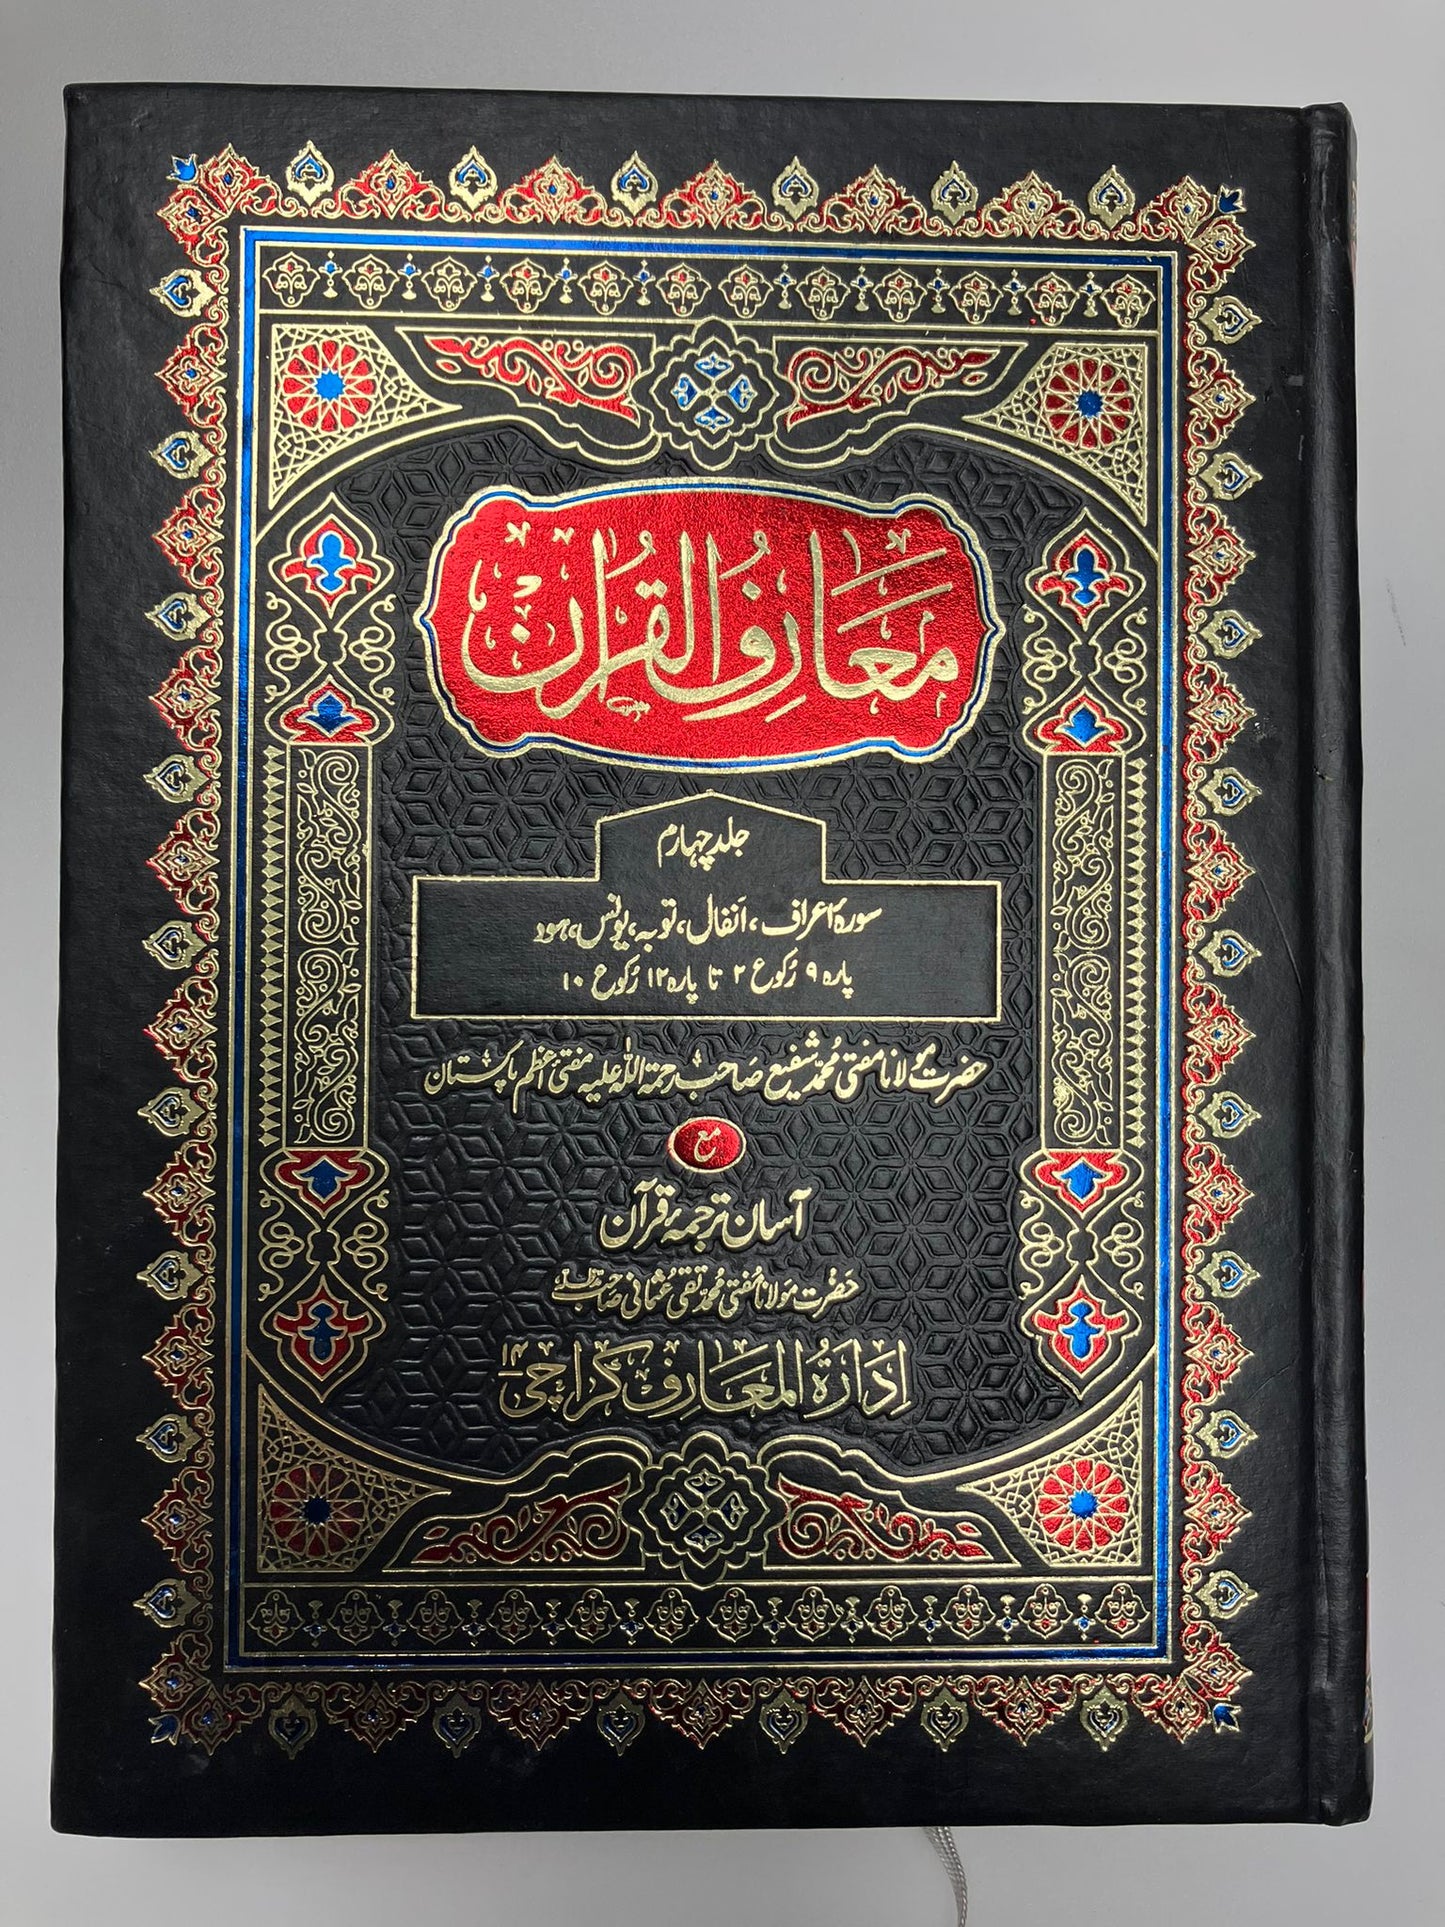 مَعَارِفُ الْقُرْآن
جلد چہارم
سورۂ اعراف، اَنفال، توبہ، یونس، ہود
پارہ ۹ رُکوع ۲ تا پارہ ۱۲ رُکوع ۱۰
حضرت مولانا مفتی محمد شفیع صاحب رحمۃ اللہ علیہ مفتیٔ اعظم پاکستان
مع
آسان ترجمۂ قرآن
حضرت مولانا مفتی محمد تقی عثمانی صاحب مدظلہ
اِدَارَةُ الْمَعَارِف کراچی ۱۴